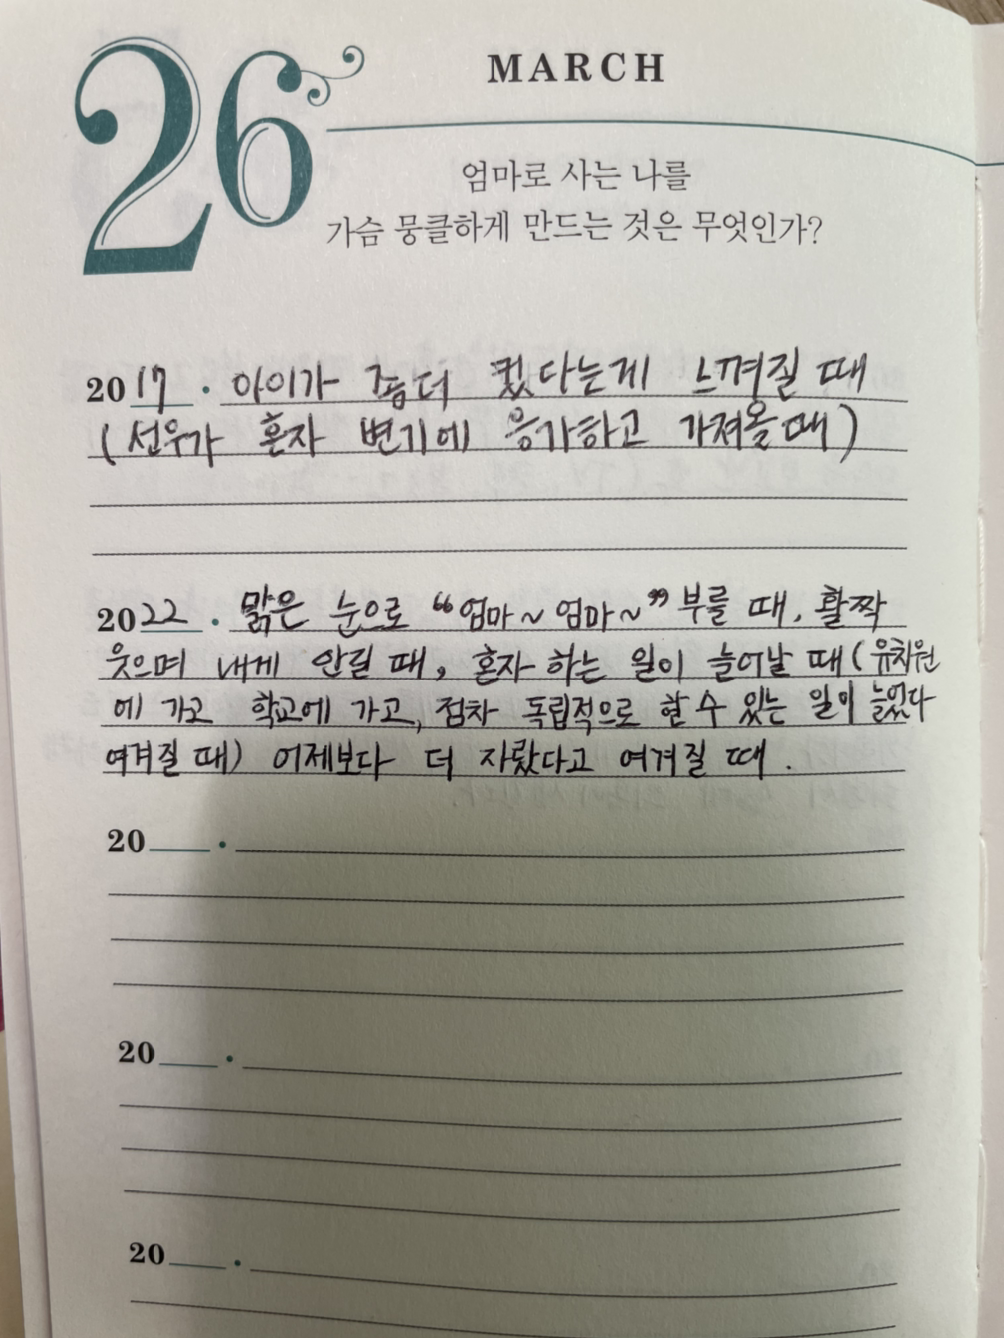 26
MARCH
엄마로 사는 나를
가슴 뭉클하게 만드는 것은 무엇인가?
2017 . 아이가 좀더 컸다는게 느껴질 때
(선우가 혼자 변기에 응가하고 가져올때)
2022 . 맑은 눈으로 “엄마~ 엄마~” 부를 때, 활짝
웃으며 내게 안길 때, 혼자 하는 일이 늘어날 때(유치원
에 가고 학교에 가고, 점차 독립적으로 할 수 있는 일이 늘었다
여겨질 때) 어제보다 더 자랐다고 여겨질 때.
20 .
20 .
20 .